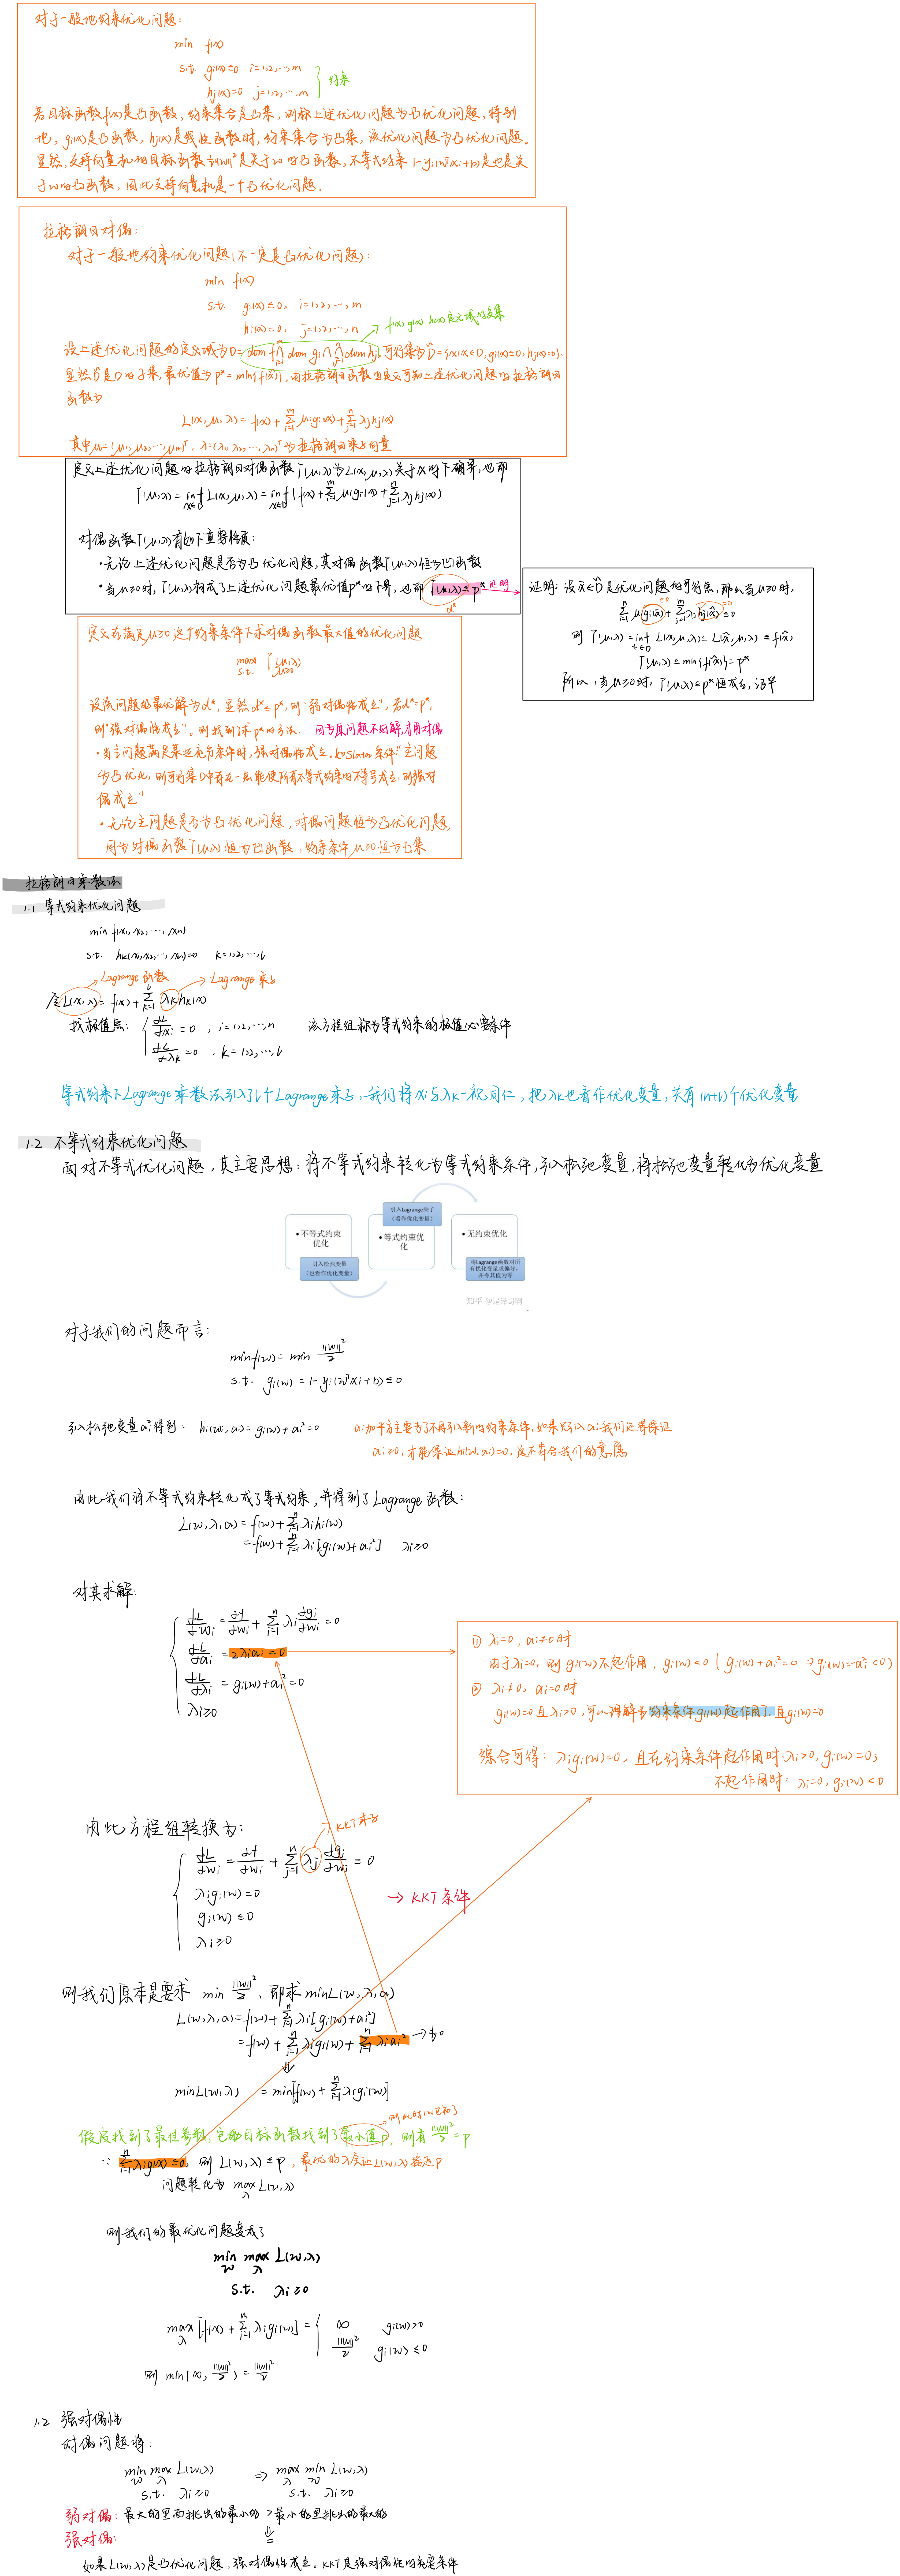 对于一般地约束优化问题：
min f(x)
s.t. gi(x)≤0 i=1,2,…,m
hj(x)=0 j=1,2,…,m
约束
若目标函数f(x)是凸函数，约束集合是凸集，则称上述优化问题为凸优化问题，特别
地，gi(x)是凸函数，hj(x)是线性函数时，约束集合为凸集，该优化问题为凸优化问题。
显然，支持向量机的目标函数½||w||²是关于w的凸函数，不等式约束 1-yi(wᵀxi+b)是也是关
于w的凸函数，因此支持向量机是一个凸优化问题。
拉格朗日对偶：
对于一般地约束优化问题(不一定是凸优化问题)：
min f(x)
s.t. gi(x)≤0, i=1,2,…,m
hi(x)=0, j=1,2,…,n
f(x), g(x), h(x)定义域的交集
设上述优化问题的定义域为D=dom f∩dom gi∩dom hj, 可行集为D̃={x|x∈D, gi(x)≤0, hj(x)=0},
显然D̃是D的子集，最优值为p*=min{f(x̃)}，由拉格朗日函数的定义可知上述优化问题的拉格朗日
函数为
L(x,μ,λ)= f(x)+∑μigi(x)+∑λjhj(x)
其中μ=(μ1,μ2,…,μm)ᵀ, λ=(λ1,λ2,…,λn)ᵀ为拉格朗日乘子向量
定义上述优化问题的拉格朗日对偶函数Γ(μ,λ)为L(x,μ,λ)关于x的下确界，也即
Γ(μ,λ)=inf L(x,μ,λ)=inf(f(x)+∑μigi(x)+∑λjhj(x))
对偶函数Γ(μ,λ)有如下重要性质：
·无论上述优化问题是否为凸优化问题，其对偶函数Γ(μ,λ)恒为凹函数
·当μ≥0时，Γ(μ,λ)构成了上述优化问题最优值p*的下界，也即 Γ(μ,λ)≤p* 证明
d*
证明：设x̃∈D̃是优化问题的可行点，那么当μ≥0时，
∑μigi(x̃)+∑λjhj(x̃)≤0
≤0 =0
则 Γ(μ,λ)=inf L(x,μ,λ)≤L(x̃,μ,λ)≤f(x̃)
Γ(μ,λ)≤min{f(x̃)}=p*
所以，当μ≥0时，Γ(μ,λ)≤p*恒成立，证毕
定义在满足μ≥0这个约束条件下求对偶函数最大值的优化问题
max Γ(μ,λ)
s.t. μ≥0
设该问题的最优解为d*，显然d*≤p*，则"弱对偶性成立"，若d*=p*，
则"强对偶性成立"。则找到了求p*的方法. 因为原问题不好解，才用对偶
·当主问题满足某些充分条件时，强对偶性成立。如Slater条件"主问题
为凸优化，则可行集D中存在一点能使所有不等式约束的不等号成立，则强对
偶成立"
·无论主问题是否为凸优化问题，对偶问题恒为凸优化问题，
因为对偶函数Γ(μ,λ)恒为凹函数，约束条件μ≥0恒为凸集
拉格朗日乘数法
1.1 等式约束优化问题
min f(x1,x2,…,xn)
s.t. hk(x1,x2,…,xn)=0 k=1,2,…,l
Lagrange 函数 Lagrange 乘子
令L(x,λ)= f(x)+∑λkhk(x)
找极值点：
∂L/∂xi=0, i=1,2,…,n 该方程组称为等式约束的极值必要条件
∂L/∂λk=0, k=1,2,…,l
等式约束下Lagrange乘数法引入了l个Lagrange乘子，我们将xi与λk一视同仁，把λk也看作优化变量，共有(n+l)个优化变量
1.2 不等式约束优化问题
面对不等式优化问题，其主要思想：将不等式约束转化为等式约束条件，引入松弛变量，将松弛变量转化为优化变量
引入Lagrange乘子
（看作优化变量）
•不等式约束优化
•等式约束优化
•无约束优化
引入松弛变量
（也看作优化变量）
将Lagrange函数对所有优化变量求偏导，并令其值为零
对于我们的问题而言：
min f(w)=min ||w||²/2
s.t. gi(w)=1-yi(wᵀxi+b)≤0
引入松弛变量ai²得到： hi(w,ai)=gi(w)+ai²=0
ai加平方主要为了不再引入新的约束条件，如果只引入ai我们还得保证
ai≥0，才能保证hi(w,ai)=0，这不符合我们的意愿
由此我们将不等式约束转化成了等式约束，并得到了Lagrange函数：
L(w,λ,a)= f(w)+∑λihi(w)
= f(w)+∑λi[gi(w)+ai²] λi≥0
对其求解：
∂L/∂wi=∂f/∂wi+∑λi ∂gi/∂wi=0
∂L/∂ai=2λiai=0
∂L/∂λi=gi(w)+ai²=0
λi≥0
① λi=0, ai≠0时
由于λi=0，则gi(w)不起作用，gi(w)<0 (gi(w)+ai²=0 ⇒gi(w)=-ai²<0)
② λi≠0, ai=0时
gi(w)=0且λi>0，可以理解为约束条件gi(w)起作用了，且gi(w)=0
综合可得：λigi(w)=0，且在约束条件起作用时λi>0, gi(w)=0;
不起作用时：λi=0, gi(w)<0
由此方程组转换为：
KKT乘子
∂L/∂wi=∂f/∂wi+∑λj ∂gj/∂wi=0
λigi(w)=0
gi(w)≤0
λi≥0
→ KKT 条件
则我们原本是要求 min ||w||²/2，即求minL(w,λ,a)
L(w,λ,a)=f(w)+∑λi[gi(w)+ai²]
=f(w)+∑λigi(w)+∑λiai² →为0
⇓
minL(w,λ) =min[f(w)+∑λigi(w)]
则此时w已知了
假设找到了最佳参数，它的目标函数找到了最小值p，则有 ||w||²/2=p
∵ ∑λigi(x)≤0，则 L(w,λ)≤p，最优的λ应让L(w,λ)接近p
问题转化为 max L(w,λ)
则我们的最优化问题变成了
min max L(w,λ)
s.t. λi≥0
max[f(x)+∑λigi(w)]= { ∞ gi(w)>0
||w||²/2 gi(w)≤0
则 min(∞, ||w||²/2)=||w||²/2
1.2 强对偶性
对偶问题将：
min max L(w,λ) ⇒ max min L(w,λ)
s.t. λi≥0 s.t. λi≥0
弱对偶：最大的里面挑出的最小的 > 最小的里挑出的最大的
强对偶： =
如果L(w,λ)是凸优化问题，强对偶性成立。KKT是强对偶性的充要条件